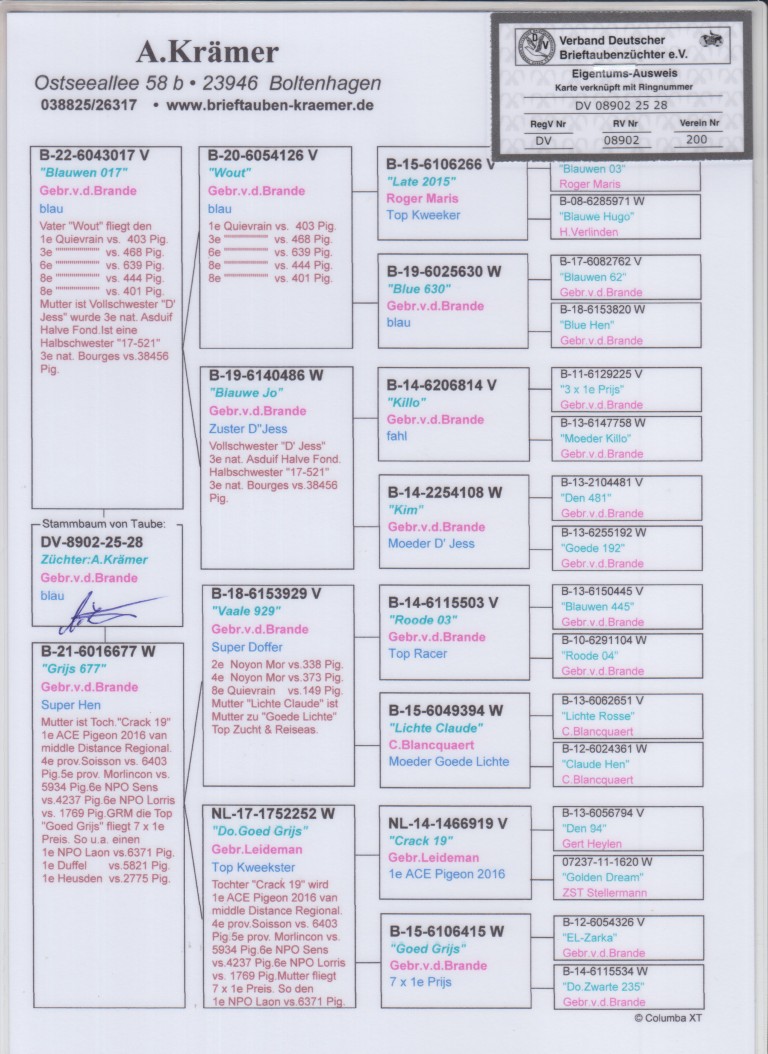 A.Krämer
Ostseeallee 58 b • 23946 Boltenhagen
038825/26317 • www.brieftauben-kraemer.de
Verband Deutscher
Brieftaubenzüchter e.V.
Eigentums-Ausweis
Karte verknüpft mit Ringnummer
DV 08902 25 28
RegV Nr RV Nr Verein Nr
DV 08902 200
B-22-6043017 V
"Blauwen 017"
Gebr.v.d.Brande
blau
Vater "Wout" fliegt den
1e Quievrain vs. 403 Pig.
3e """""""""""" vs. 468 Pig.
6e """""""""""" vs. 639 Pig.
8e """""""""""" vs. 444 Pig.
8e """""""""""" vs. 401 Pig.
Mutter ist Vollschwester "D'
Jess" wurde 3e nat. Asduif
Halve Fond.Ist eine
Halbschwester "17-521"
3e nat. Bourges vs.38456
Pig.
Stammbaum von Taube:
DV-8902-25-28
Züchter:A.Krämer
Gebr.v.d.Brande
blau
B-21-6016677 W
"Grijs 677"
Gebr.v.d.Brande
Super Hen
Mutter ist Toch."Crack 19"
1e ACE Pigeon 2016 van
middle Distance Regional.
4e prov.Soisson vs. 6403
Pig.5e prov. Morlincon vs.
5934 Pig.6e NPO Sens
vs.4237 Pig.6e NPO Lorris
vs. 1769 Pig.GRM die Top
"Goed Grijs" fliegt 7 x 1e
Preis. So u.a. einen
1e NPO Laon vs.6371 Pig.
1e Duffel vs.5821 Pig.
1e Heusden vs.2775 Pig.
B-20-6054126 V
"Wout"
Gebr.v.d.Brande
blau
1e Quievrain vs. 403 Pig.
3e """""""""""" vs. 468 Pig.
6e """""""""""" vs. 639 Pig.
8e """""""""""" vs. 444 Pig.
8e """""""""""" vs. 401 Pig.
B-19-6140486 W
"Blauwe Jo"
Gebr.v.d.Brande
Zuster D"Jess
Vollschwester "D' Jess"
3e nat. Asduif Halve Fond.
Halbschwester "17-521"
3e nat. Bourges vs.38456
Pig.
B-18-6153929 V
"Vaale 929"
Gebr.v.d.Brande
Super Doffer
2e Noyon Mor vs.338 Pig.
4e Noyon Mor vs.373 Pig.
8e Quievrain vs.149 Pig.
Mutter "Lichte Claude" ist
Mutter zu "Goede Lichte"
Top Zucht & Reiseas.
NL-17-1752252 W
"Do.Goed Grijs"
Gebr.Leideman
Top Kweekster
Tochter "Crack 19" wird
1e ACE Pigeon 2016 van
middle Distance Regional.
4e prov.Soisson vs. 6403
Pig.5e prov. Morlincon vs.
5934 Pig.6e NPO Sens
vs.4237 Pig.6e NPO Lorris
vs. 1769 Pig.Mutter fliegt
7 x 1e Preis. So den
1e NPO Laon vs.6371 Pig.
B-15-6106266 V
"Late 2015"
Roger Maris
Top Kweeker
B-19-6025630 W
"Blue 630"
Gebr.v.d.Brande
blau
B-14-6206814 V
"Killo"
Gebr.v.d.Brande
fahl
B-14-2254108 W
"Kim"
Gebr.v.d.Brande
Moeder D' Jess
B-14-6115503 V
"Roode 03"
Gebr.v.d.Brande
Top Racer
B-15-6049394 W
"Lichte Claude"
C.Blancquaert
Moeder Goede Lichte
NL-14-1466919 V
"Crack 19"
Gebr.Leideman
1e ACE Pigeon 2016
B-15-6106415 W
"Goed Grijs"
Gebr.v.d.Brande
7 x 1e Prijs
"Blauwen 03"
Roger Maris
B-08-6285971 W
"Blauwe Hugo"
H.Verlinden
B-17-6082762 V
"Blauwen 62"
Gebr.v.d.Brande
B-18-6153820 W
"Blue Hen"
Gebr.v.d.Brande
B-11-6129225 V
"3 x 1e Prijs"
Gebr.v.d.Brande
B-13-6147758 W
"Moeder Killo"
Gebr.v.d.Brande
B-13-2104481 V
"Den 481"
Gebr.v.d.Brande
B-13-6255192 W
"Goede 192"
Gebr.v.d.Brande
B-13-6150445 V
"Blauwen 445"
Gebr.v.d.Brande
B-10-6291104 W
"Roode 04"
Gebr.v.d.Brande
B-13-6062651 V
"Lichte Rosse"
C.Blancquaert
B-12-6024361 W
"Claude Hen"
C.Blancquaert
B-13-6056794 V
"Den 94"
Gert Heylen
07237-11-1620 W
"Golden Dream"
ZST Stellermann
B-12-6054326 V
"EL-Zarka"
Gebr.v.d.Brande
B-14-6115534 W
"Do.Zwarte 235"
Gebr.v.d.Brande
© Columba XT